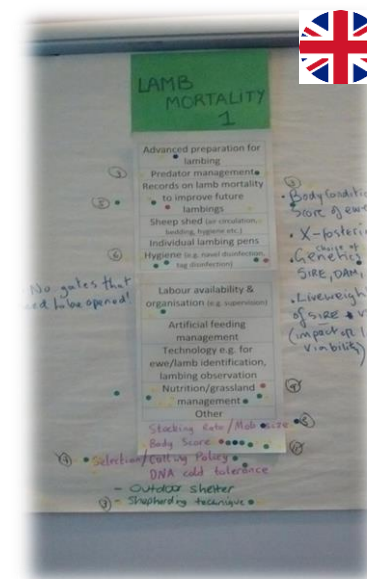 LAMB
MORTALITY
1
Advanced preparation for
lambing
③ Predator management
Records on lamb mortality
⑤ to improve future
lambings
Sheep shed (air circulation,
bedding, hygiene etc.)
Individual lambing pens
⑥ Hygiene (e.g. navel disinfection,
tag disinfection)
Labour availability &
organisation (e.g. supervision)
Artificial feeding
management
Technology e.g. for
ewe/lamb identification,
lambing observation
Nutrition/grassland
management
Other
Stocking Rate/Mob size
Body Score
Selection/Culling Policy
DNA cold tolerance
- Outdoor shelter
- Shepherding technique
No gates that
to be opened!
• Body Conditi
Score of ewe
• X-fostering
choice of
• Genetics
SIRE, DAM,
• Liveweigh
of SIRE
(impact on
viability)